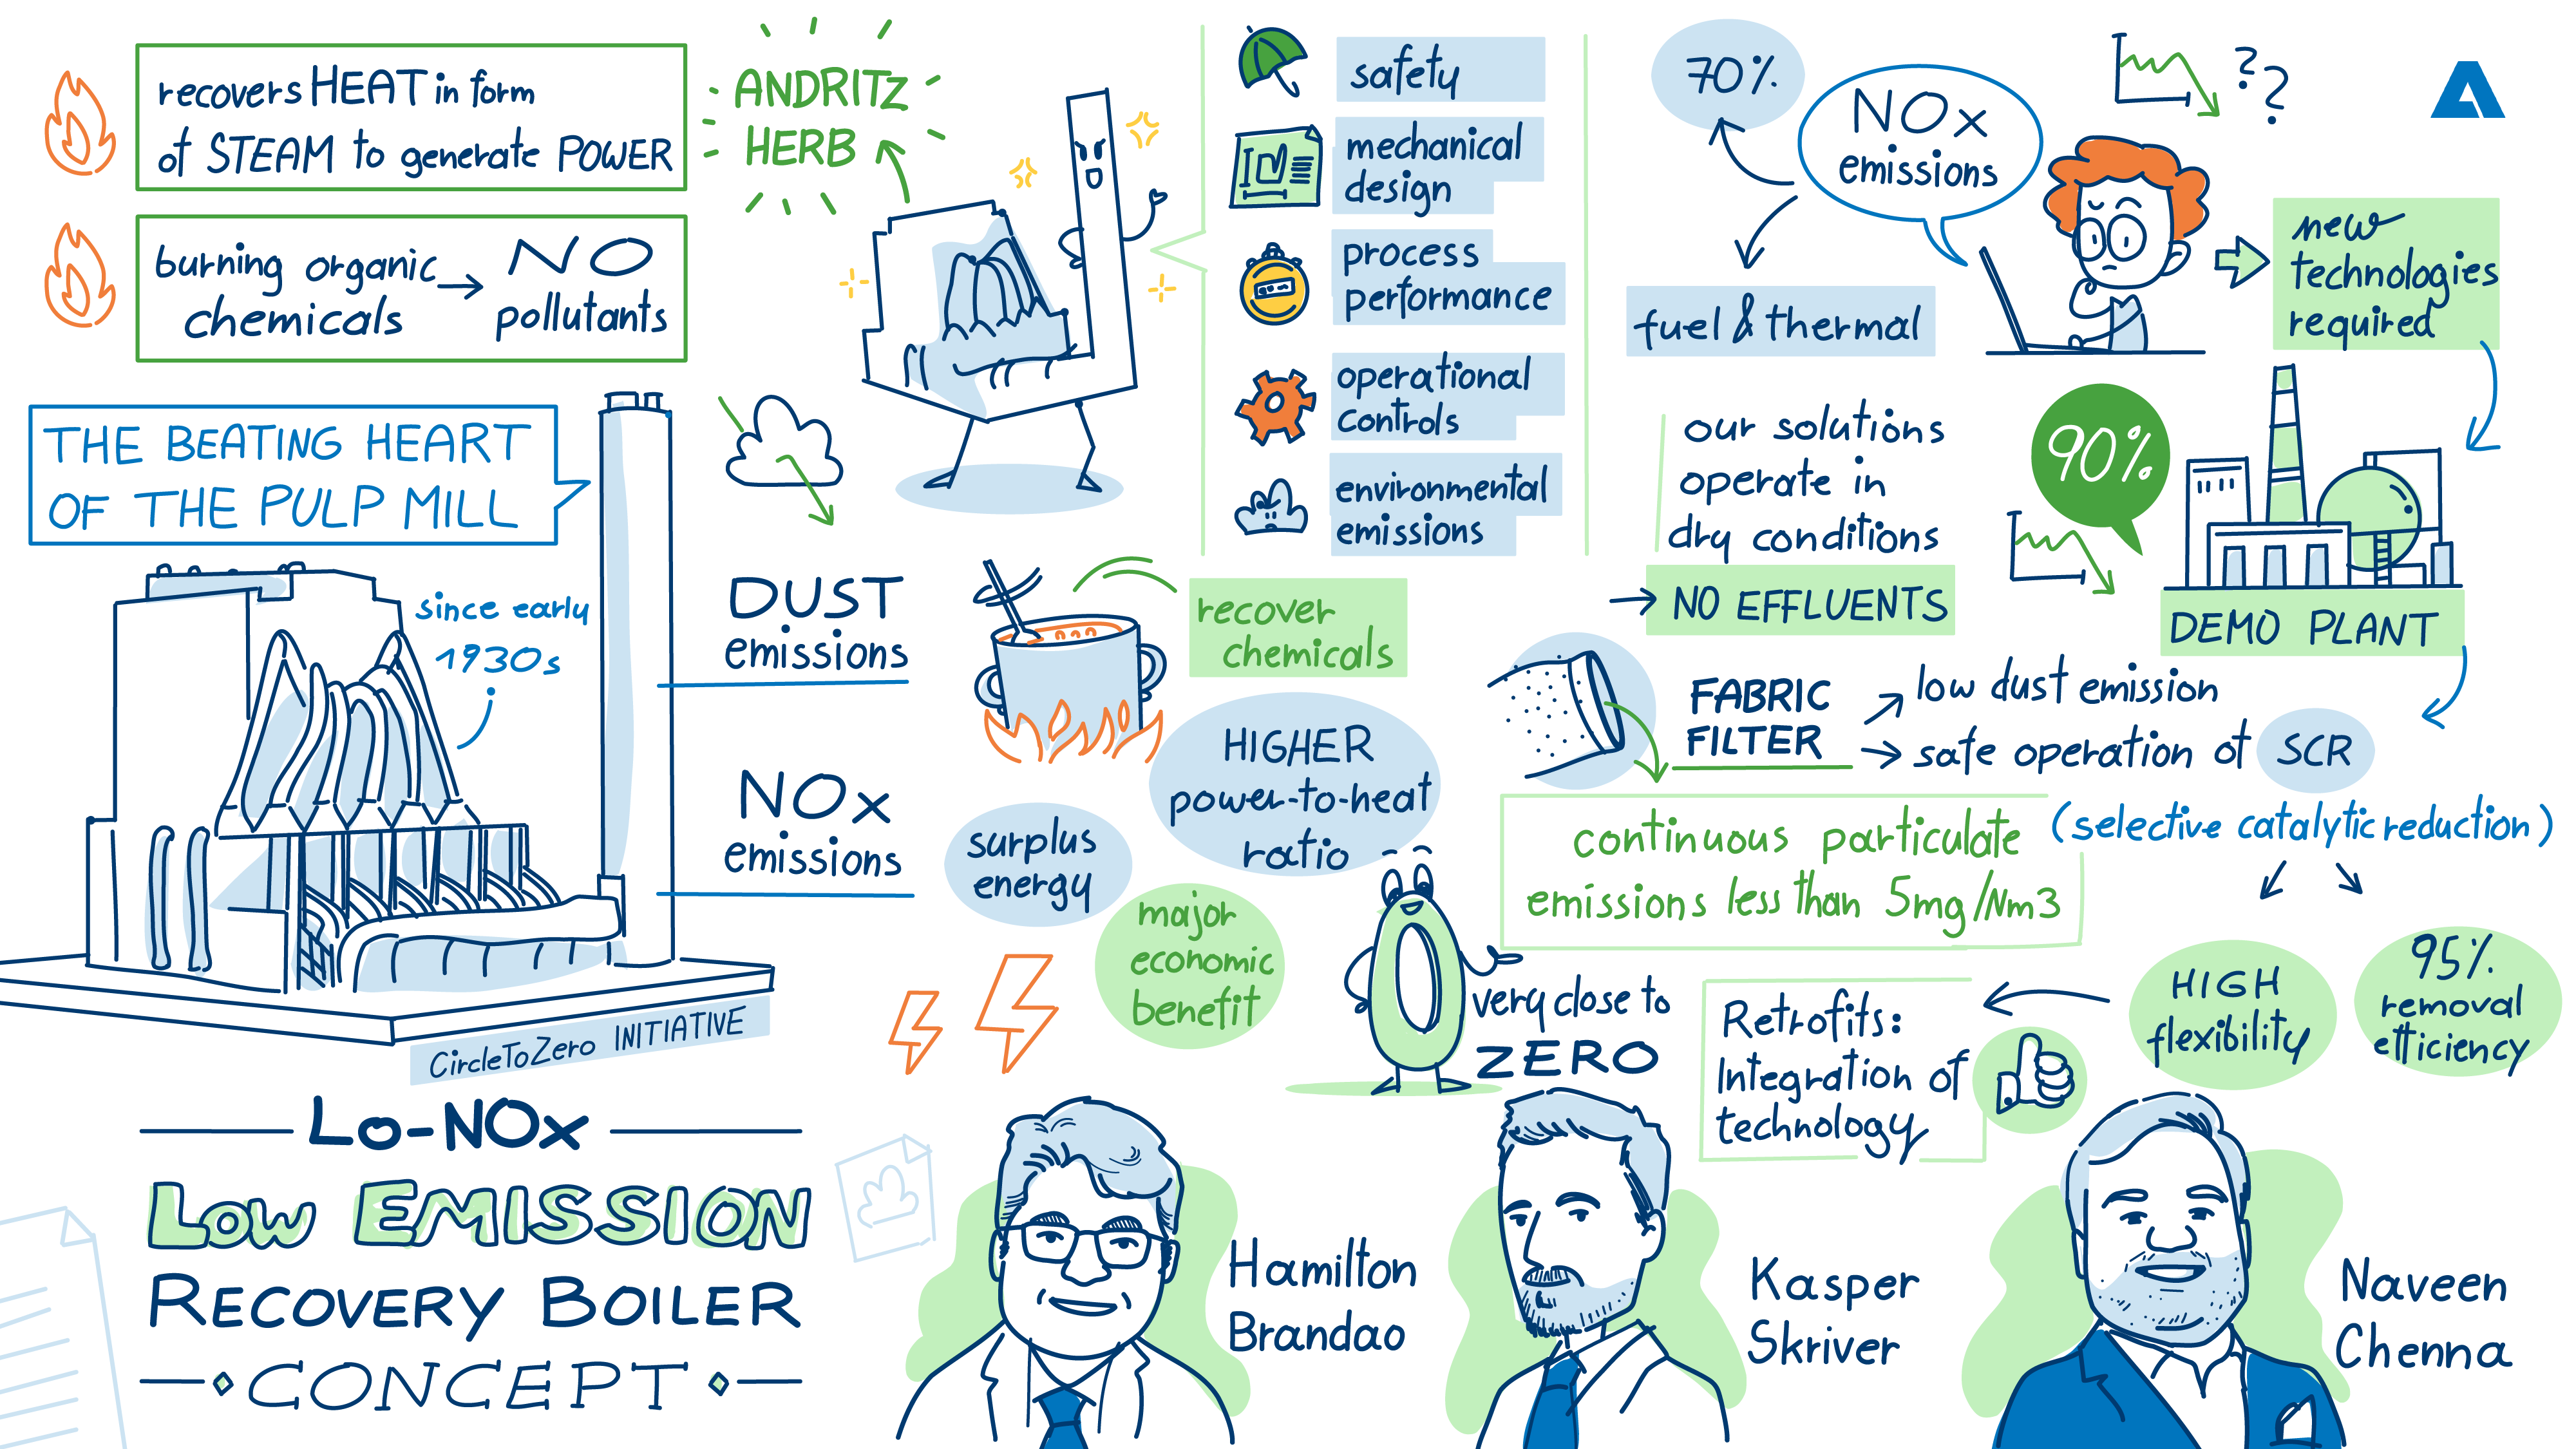 recovers HEAT in form
of STEAM to generate POWER
burning organic
chemicals
NO
pollutants
ANDRITZ
HERB
THE BEATING HEART
OF THE PULP MILL
since early
1930s
DUST
emissions
NOx
emissions
CircleToZero INITIATIVE
Lo-NOx
Low EMISSION
RECOVERY BOILER
CONCEPT
safety
mechanical
design
process
performance
operational
controls
environmental
emissions
recover
chemicals
HIGHER
power-to-heat
ratio
surplus
energy
major
economic
benefit
70%
NOx
emissions
??
fuel & thermal
new
technologies
required
our solutions
operate in
dry conditions
NO EFFLUENTS
90%
DEMO PLANT
FABRIC
FILTER
low dust emission
safe operation of SCR
(selective catalytic reduction)
continuous particulate
emissions less than 5mg/Nm3
0
very close to
ZERO
Retrofits:
Integration of
technology
HIGH
flexibility
95%
removal
efficiency
Hamilton
Brandao
Kasper
Skriver
Naveen
Chenna